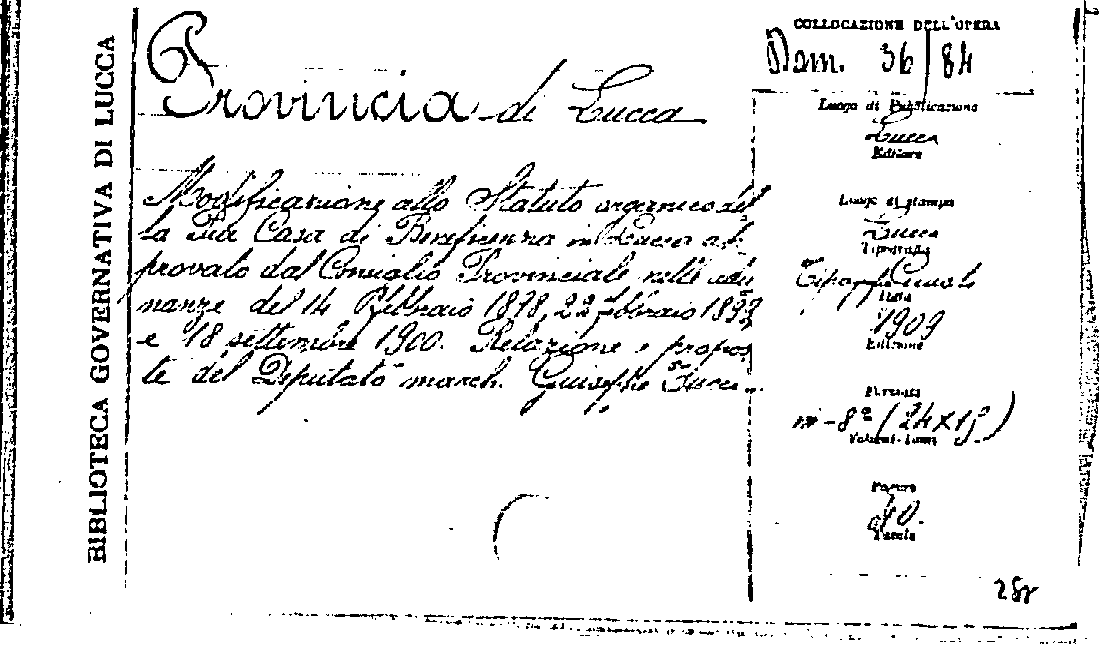 BIBLIOTECA GOVERNATIVA DI LUCCA
Provincia di Lucca
Modificazione allo Statuto organico del
la Pia Casa di Beneficenza in Lucca ap
provato dal Consiglio Provinciale nelle adu
nanze del 14 Febbraio 1898, 22 febbraio 1899
e 18 settembre 1900. Relazione e propos
te del Deputato march. Giuseppe
COLLOCAZIONE DELL'OPERA
Dom. 36/84
Luogo di Pubblicazione
Lucca
Editore
Luogo di stampa
Lucca
Tipografia
Data
1909
Edizione
Formato
in-8°
Volumi-Tomi
Pagine
Tavole